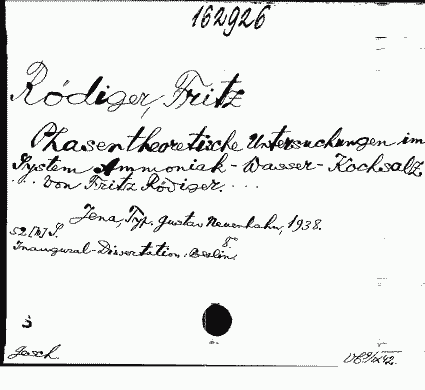 162926
Rödiger, Fritz
Phasentheoretische Untersuchungen im
System Ammoniak-Wasser-Kochsalz
... von Fritz Rödiger. ...
Jena, Typ. Gustav Neuenhahn, 1938.
52 [N] S. 8.
Inaugural-Dissertation. Berlin.
Gesch.